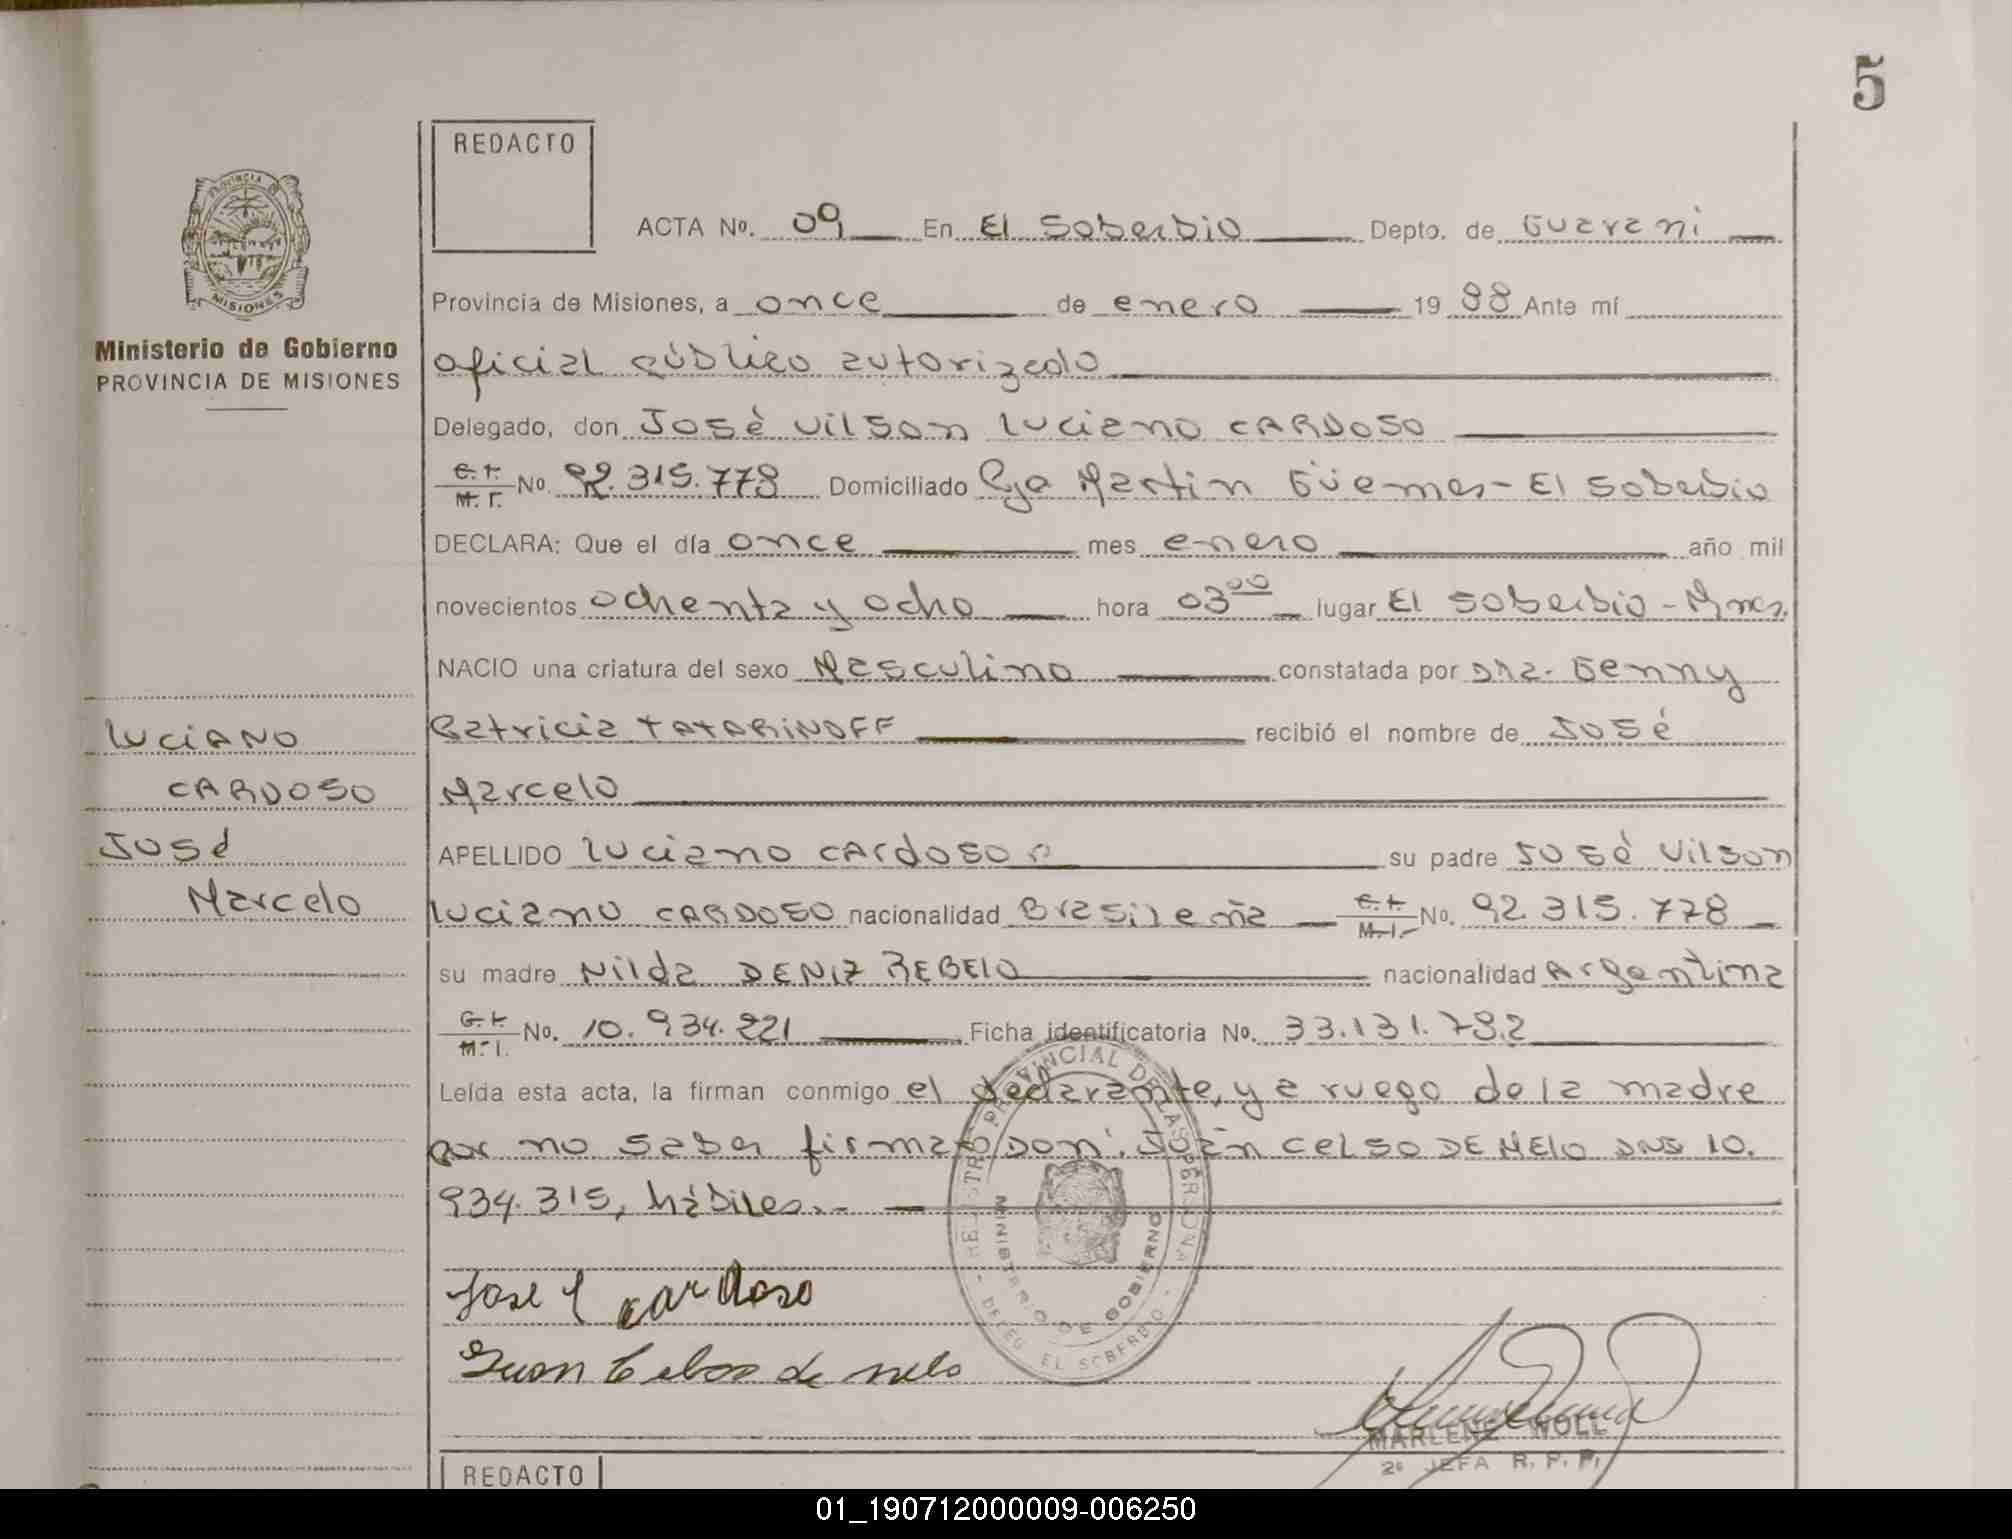 5
REDACTO
ACTA Nº. 09 En El Soberbio Depto. de Guarani
Provincia de Misiones, a once de enero 1988 Ante mí
oficial público autorizado
Delegado, don José Vilson Luciano CARDOSO
C.I. M.I. No. 92.315.778 Domiciliado Pje Martin Güemes - El Soberbio
DECLARA: Que el día once mes enero año mil
novecientos ochenta y ocho hora 03 00 lugar El Soberbio - Mnes.
NACIO una criatura del sexo Masculino constatada por Dra. Genny
Patricia TATARINOFF recibió el nombre de José
Marcelo
APELLIDO Luciano CARDOSO su padre José Vilson
Luciano CARDOSO nacionalidad Brasileña C.I. M.I. No. 92.315.778
su madre Nilda DENIZ REBELO nacionalidad Argentina
C.I. M.I. No. 10.934.221 Ficha identificatoria No. 33.131.782
Leída esta acta, la firman conmigo el declarante, y a ruego de la madre
por no saber firmar Don: Juan Celso DE MELO DNI 10.
934.315, hábiles.-
Jose L cardoso
Juan Celso de melo
REGISTRO PROVINCIAL DE LAS PERSONAS
MINISTERIO DE GOBIERNO
- DELEG. EL SOBERBIO -
MARLENE WOLL
2º JEFA R. P. P.
REDACTO
PROVINCIA
MISIONES
Ministerio de Gobierno
PROVINCIA DE MISIONES
LUCIANO
CARDOSO
José
Marcelo
01_190712000009-006250